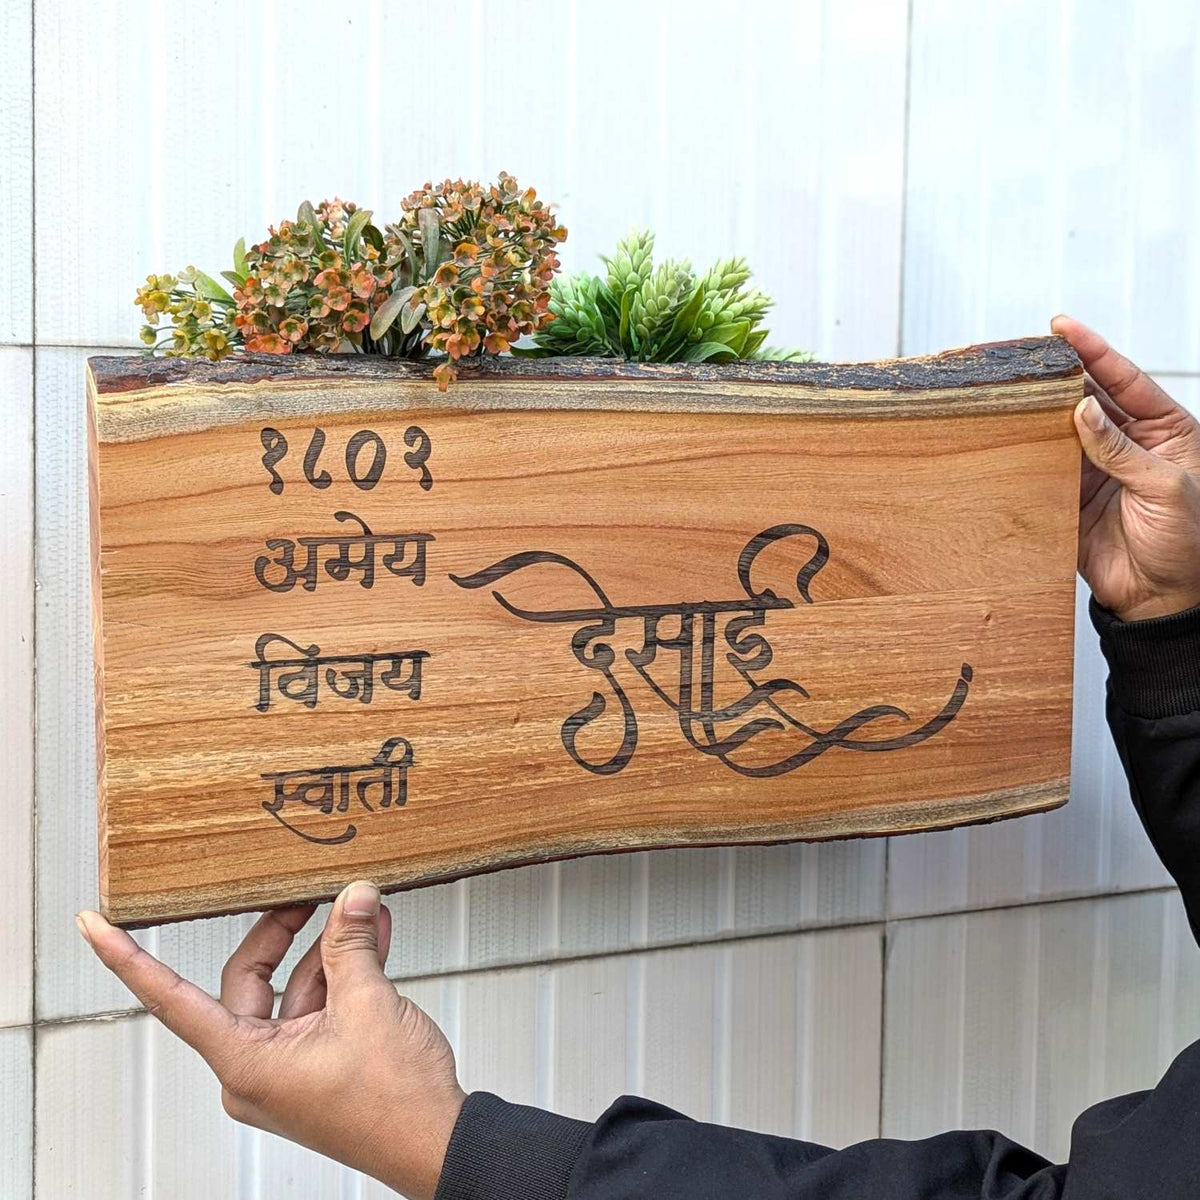 १८०२
अमेय
विजय
स्वाती
देसाई